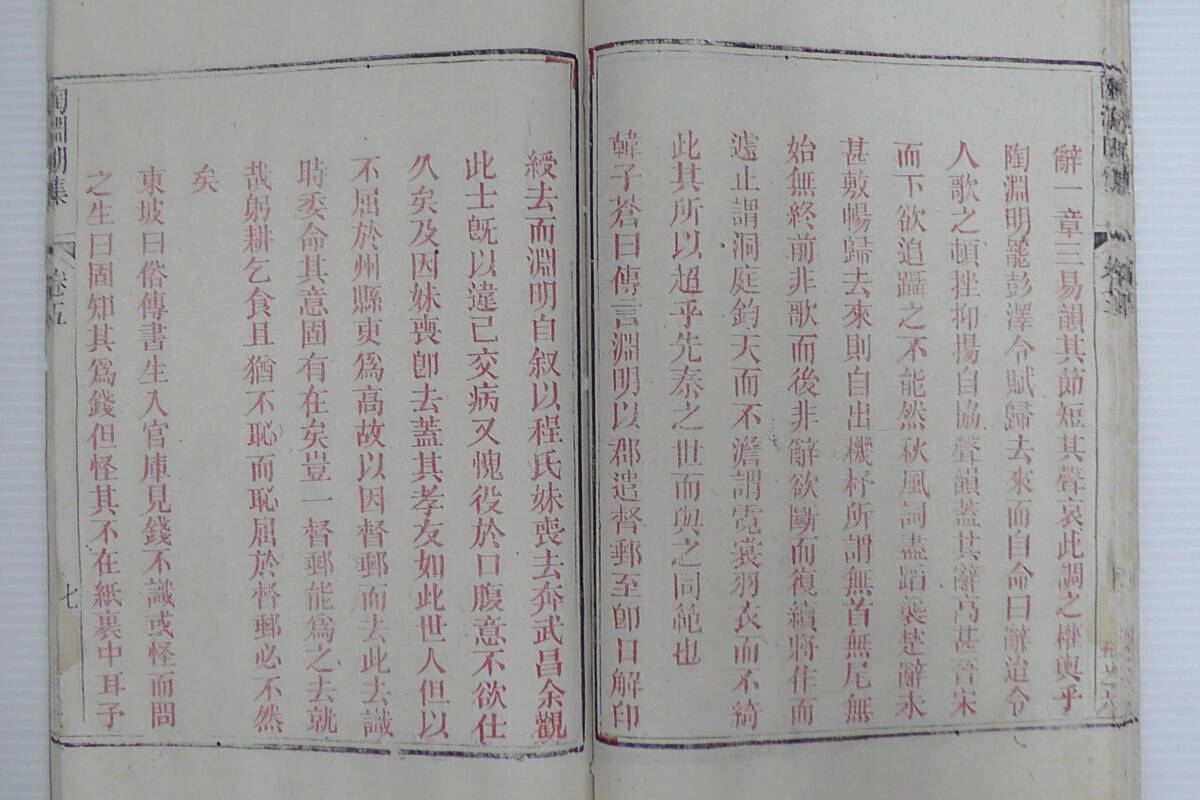 辭一章三易韻其節短其聲哀此調之權輿乎
陶淵明罷彭澤令賦歸去來而自命曰辭迨今
人歌之頓挫抑揚自協聲韻蓋其辭高甚晉宋
而下欲追躡之不能然秋風詞盡蹈襲楚辭未
甚敷暢歸去來則自出機杼所謂無首無尾無
始無終前非歌而後非辭欲斷而復續將作而
遽止謂洞庭鈞天而不澹謂霓裳羽衣而不綺
此其所以超乎先秦之世而與之同範也
韓子蒼曰傳言淵明以郡遣督郵至卽日解印
綬去而淵明自敘以程氏妹喪去奔武昌余觀
此士旣以違己交病又愧役於口腹意不欲仕
久矣及因妹喪卽去蓋其孝友如此世人但以
不屈於州縣吏爲高故以因督郵而去此去識
時委命其意固有在矣豈一督郵能爲之去就
哉躬耕乞食且猶不恥而恥屈於督郵必不然
矣
東坡曰俗傳書生入官庫見錢不識或怪而問
之生曰固知其爲錢但怪其不在紙裹中耳予
陶淵明集
卷五
七